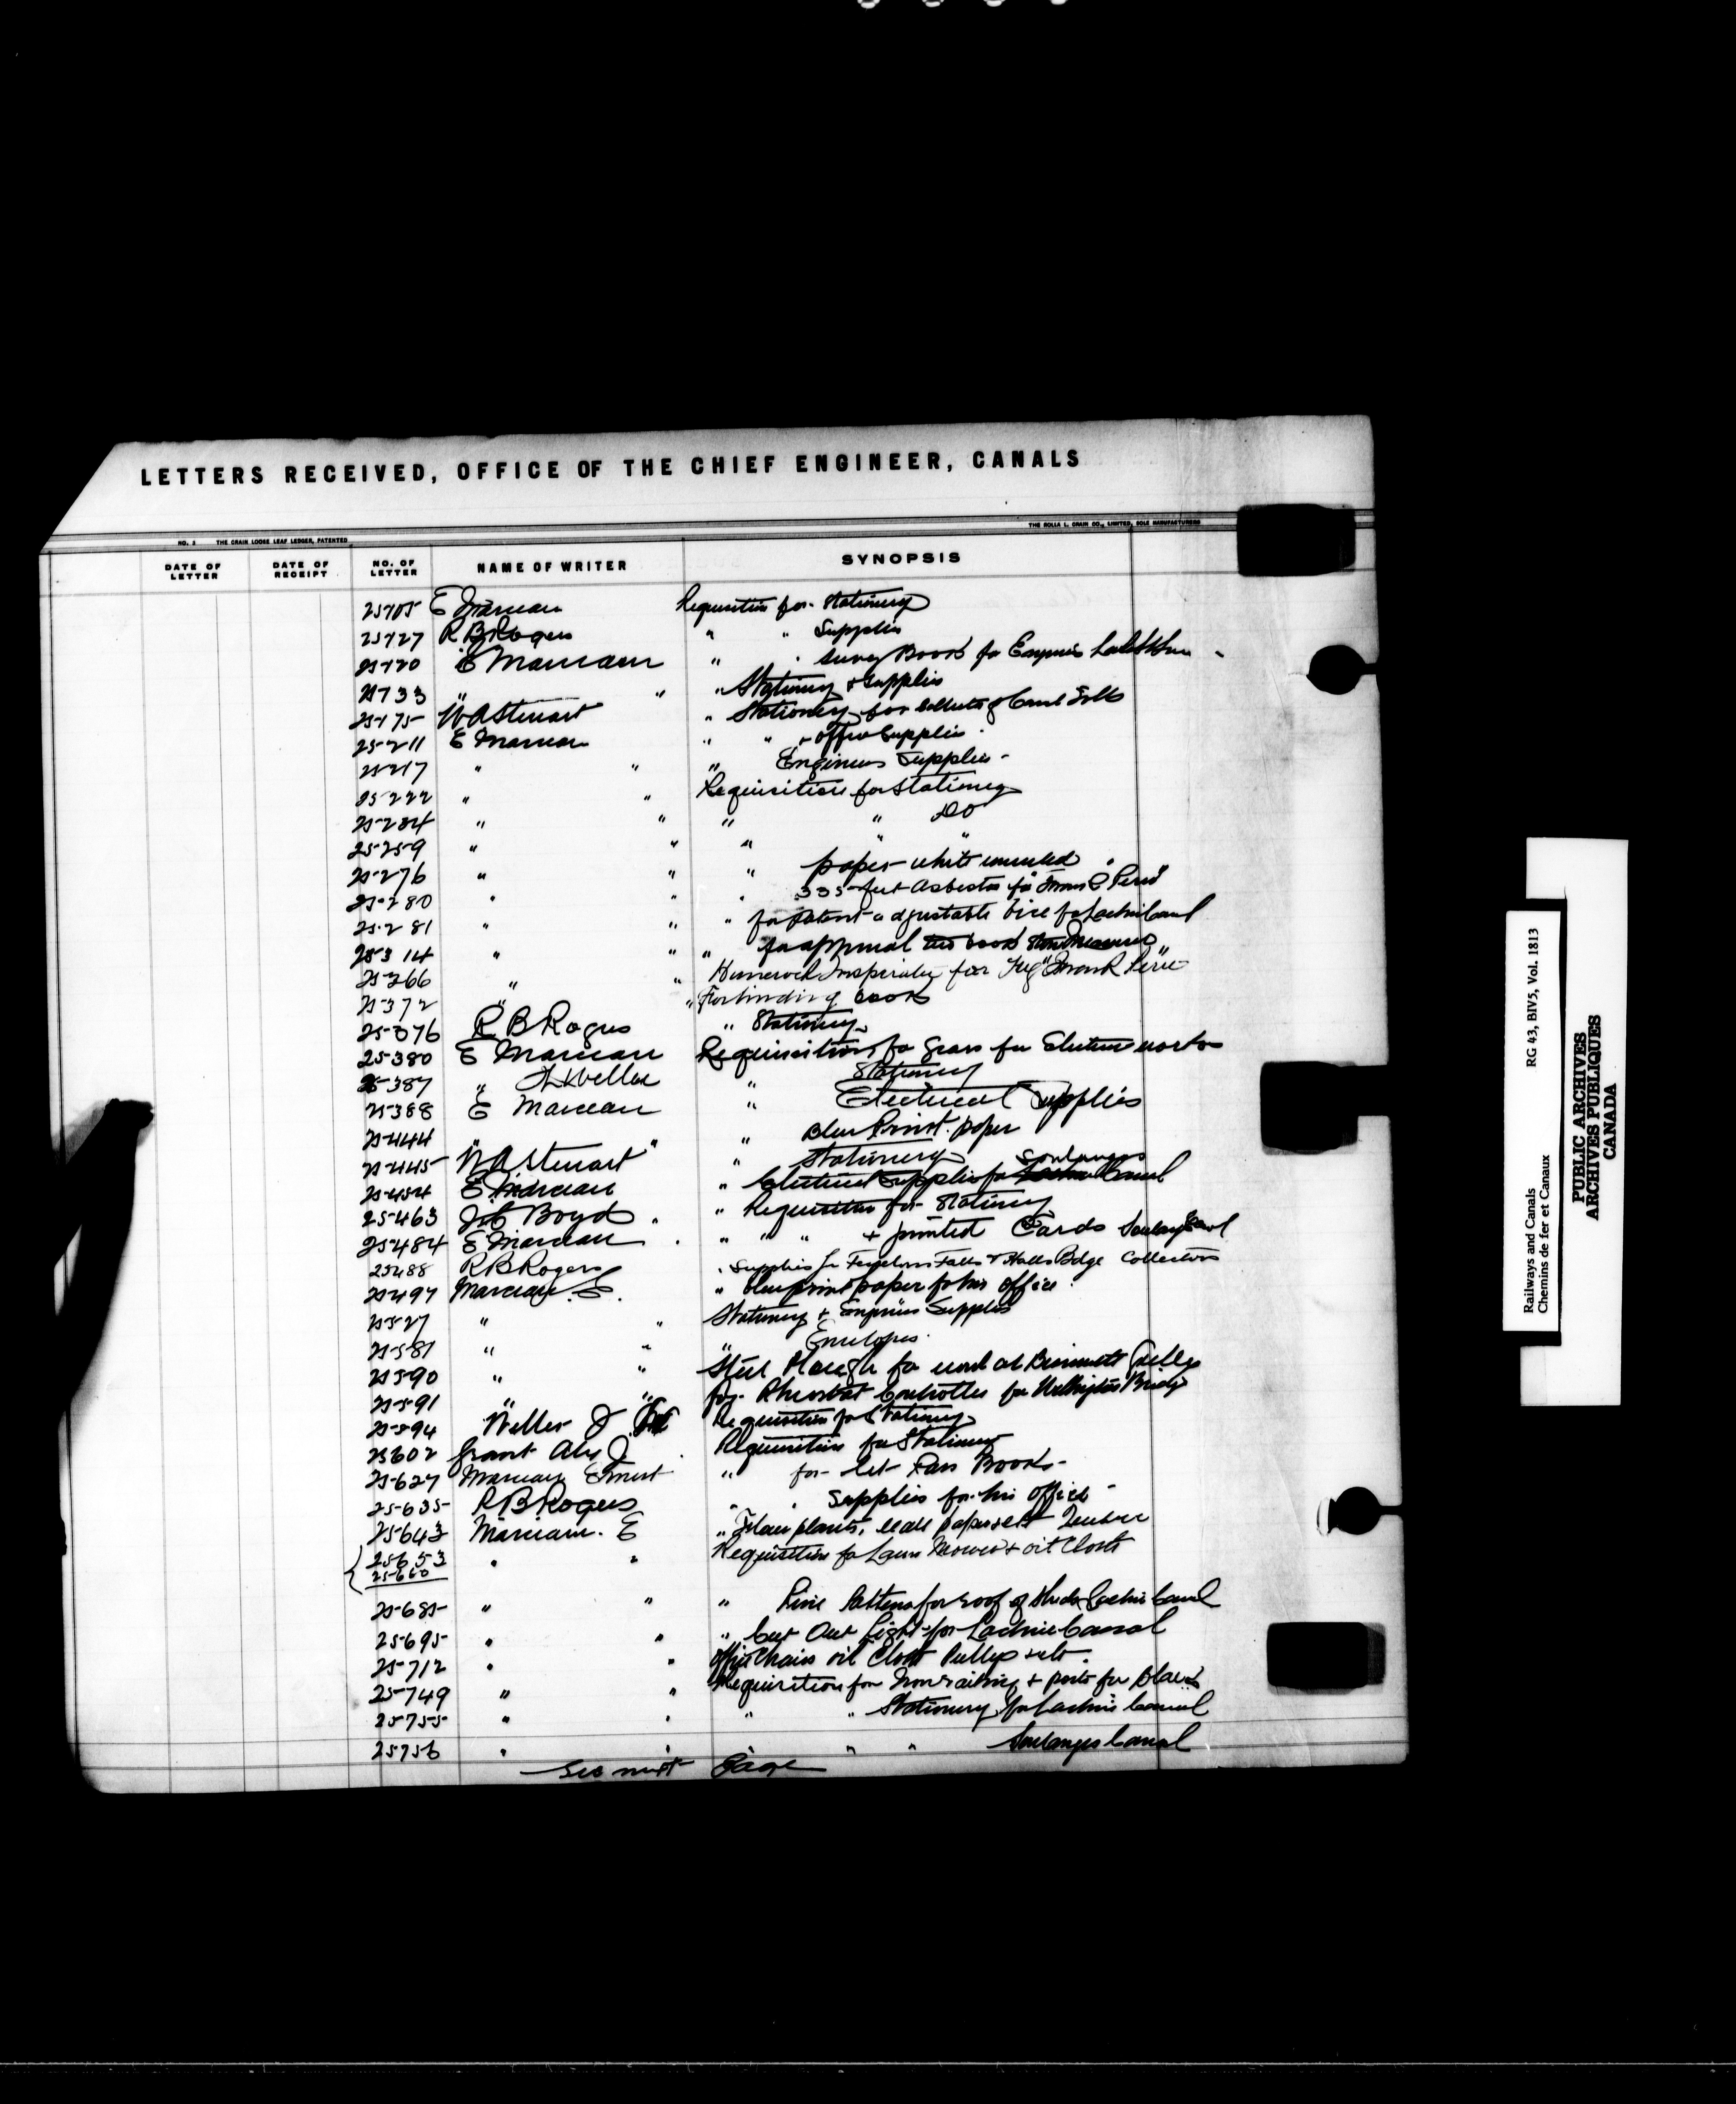 LETTERS RECEIVED, OFFICE OF THE CHIEF ENGINEER, CANALS
THE ROLLA L. CRAIN CO., LIMITED, SOLE MANUFACTURERS
NO. 2 THE CRAIN LOOSE LEAF LEDGER, PATENTED
DATE OF LETTER DATE OF RECEIPT NO. OF LETTER NAME OF WRITER SYNOPSIS
25105 E Marceau Requisition for Stationery
25127 R B Rogers " " Supplies
E Marceau " " Survey Book for
25133 " " " Stationery & Supplies
25175 W A Stewart " Stationery for Collectors of Canal Tolls
25211 E Marceau " " + office Supplies
25217 " " " Engineers Supplies
25222 " " Requisition for Stationery
" " " " Do
25259 " " " " "
25276 " " " paper white mounted
25280 " 335 feet Asbestos for
25281 " " " for patent adjustable vice for Lachine Canal
25314 " " " for approval
" " for Tug
25372 " " For binding books
25376 R B Rogers " Stationery
25380 E Marceau Requisition for
25387 " Weller " Stationery
25388 E Marceau " Electrical Supplies
25444 " " " Blue Print paper
25445 W A Stewart " Stationery
25454 E Marceau " Electrical Supplies for Soulanges Canal
25463 Boyd " Requisition for Stationery
25484 E Marceau " " " + printed Cards Soulanges Canal
25488 R B Rogers Supplies for Fenelon Falls & Halls Bdge Collectors
25497 Marceau E. " blueprint paper for his office
25527 " " Stationery + Engineers Supplies
25581 " " " Envelopes
25590 " " Steel
25591 " " for Rheostat Controller for Wellington Bridge
25594 Weller J Requisition for Stationery
25602 Grant Alex J Requisition for Stationery
25627 Marceau Ernest " for Let Pass Books
25635 R B Rogers " " Supplies for his office
25643 Marceau. E "
25653 " " Requisition for Lawn Mower + oil Cloth
25660
25685 " " " for roof of Sheds Lachine Canal
25695 " " " Cut Out Light for Lachine Canal
25712 " " Office Chairs oil Cloth
25749 " " Requisition for Iron railing + posts for
25755 " " " " Stationery for Lachine Canal
25756 " " " " Soulanges Canal
See next Page
Railways and Canals RG 43, BIV5, Vol. 1813
Chemins de fer et Canaux
PUBLIC ARCHIVES
ARCHIVES PUBLIQUES
CANADA